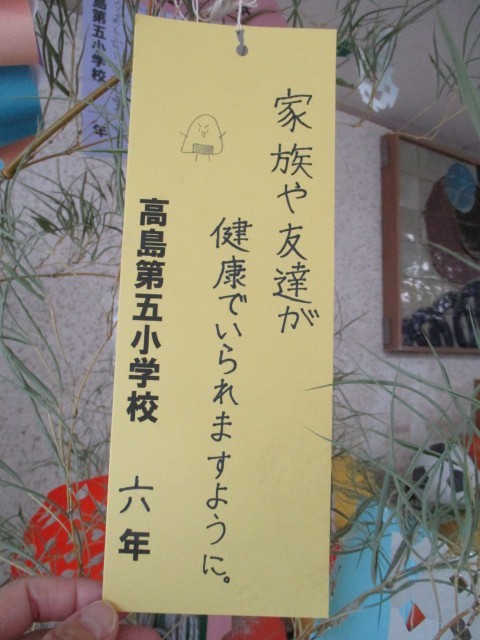 家族や友達が
健康でいられますように。
高島第五小学校 六年
高島第五小学校 年